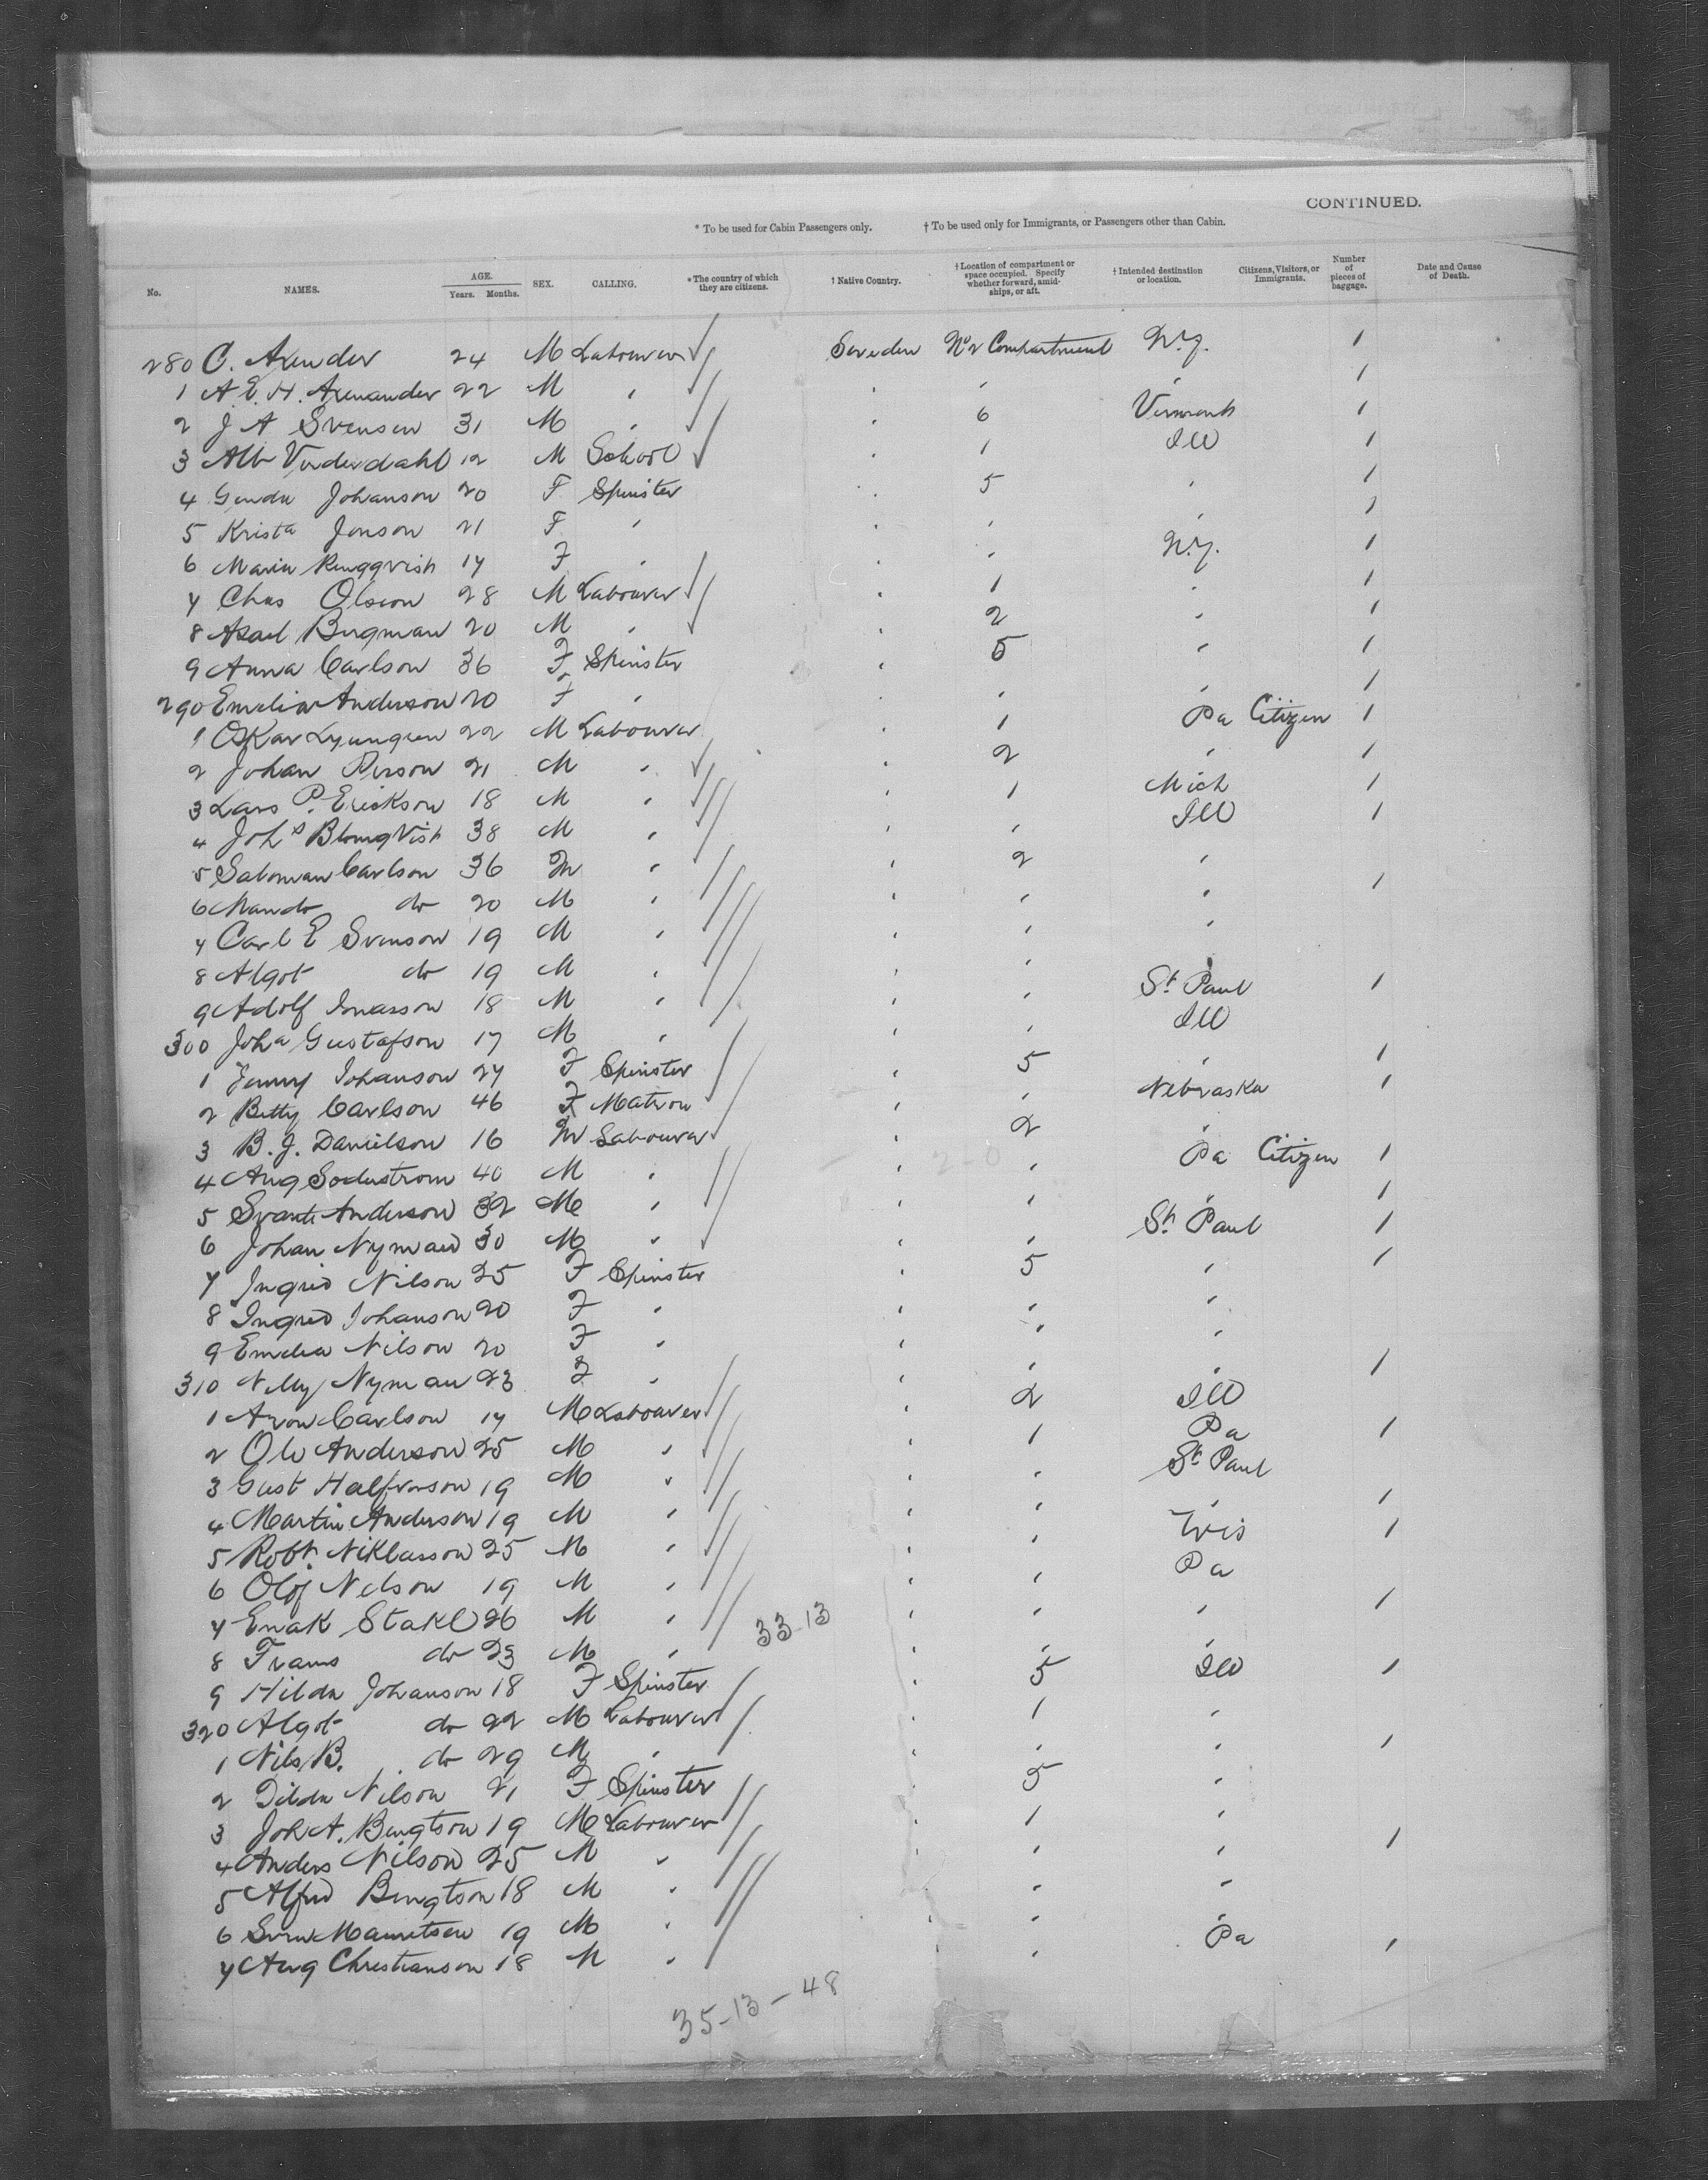 CONTINUED.
* To be used for Cabin Passengers only. † To be used only for Immigrants, or Passengers other than Cabin.
No. NAMES. AGE. Years. Months. SEX. CALLING. * The country of which they are citizens. † Native Country. † Location of compartment or space occupied. Specify whether forward, amidships, or aft. † Intended destination or location. Citizens, Visitors, or Immigrants. Number of pieces of baggage. Date and Cause of Death.
280 C. 24 M Labourer Sweden No 2 Compartment N.Y. 1
1 A. E. H. 22 M " " " " 1
2 J A Svensen 31 M " " 6 Vermont 1
3 Alb 12 M School " 1 Ill 1
4 Johanson 20 F Spinster " 5 " 1
5 Krista Jonson 21 F " " " " 1
6 Maria 17 F " " " N.Y. 1
7 Chas Olsson 28 M Labourer " 1 " 1
8 Bergman 20 M " " 2 " 1
9 Anna Carlson 36 F Spinster " 5 " 1
290 Emelia Anderson 20 F " " " " 1
1 Oskar Lyungren 22 M Labourer " 1 Pa Citizen 1
2 Johan Person 21 M " " 2 " 1
3 Lars P. Erickson 18 M " " 1 Mich 1
4 Joh s Blomqvist 38 M " " " Ill 1
5 Saloman Carlson 36 M " " 2 "
6 do 20 M " " " " 1
7 Carl E Svenson 19 M " " " "
8 Algot do 19 M " " " "
9 Adolf 18 M " " " St Paul 1
300 Joh a Gustafson 17 M " " " Ill
1 Jenny Johanson 27 F Spinster " 5 " 1
2 Betty Carlson 46 F Matron " " Nebraska 1
3 B. J. Danielson 16 M Labourer " 2 "
4 Aug Soderstrom 40 M " " " Pa Citizen 1
5 Svante Anderson 32 M " " " " 1
6 Johan Nyman 30 M " " " St Paul 1
7 Ingrid Nilson 25 F Spinster " 5 " 1
8 Ingred Johanson 20 F " " " "
9 Emelia Nilson 20 F " " " "
310 Nelly Nyman 23 F " " " " 1
1 Aron Carlson 17 M Labourer " 2 Ill
2 Ole Anderson 25 M " " 1 Pa 1
3 Gust Halfvarson 19 M " " " St Paul
4 Martin Anderson 19 M " " " " 1
5 Robt. Niklasson 25 M " " " Wis 1
6 Olof Nelson 19 M " " " Pa
7 Enok Stakl 26 M " " " " 1
8 Frans do 23 M " " " "
33-13
9 Hilda Johanson 18 F Spinster " 5 Ill 1
320 Algot do 22 M Labourer " 1 "
1 Nils B. do 29 M " " " " 1
2 Tilda Nilson 21 F Spinster " 5 "
3 Joh A. Bengtson 19 M Labourer " 1 "
4 Anders Nilson 25 M " " " " 1
5 Alfred Bengtson 18 M " " " "
6 Sven Mauritsen 19 M " " " "
7 Aug Christianson 18 M " " " Pa 1
35-13-48